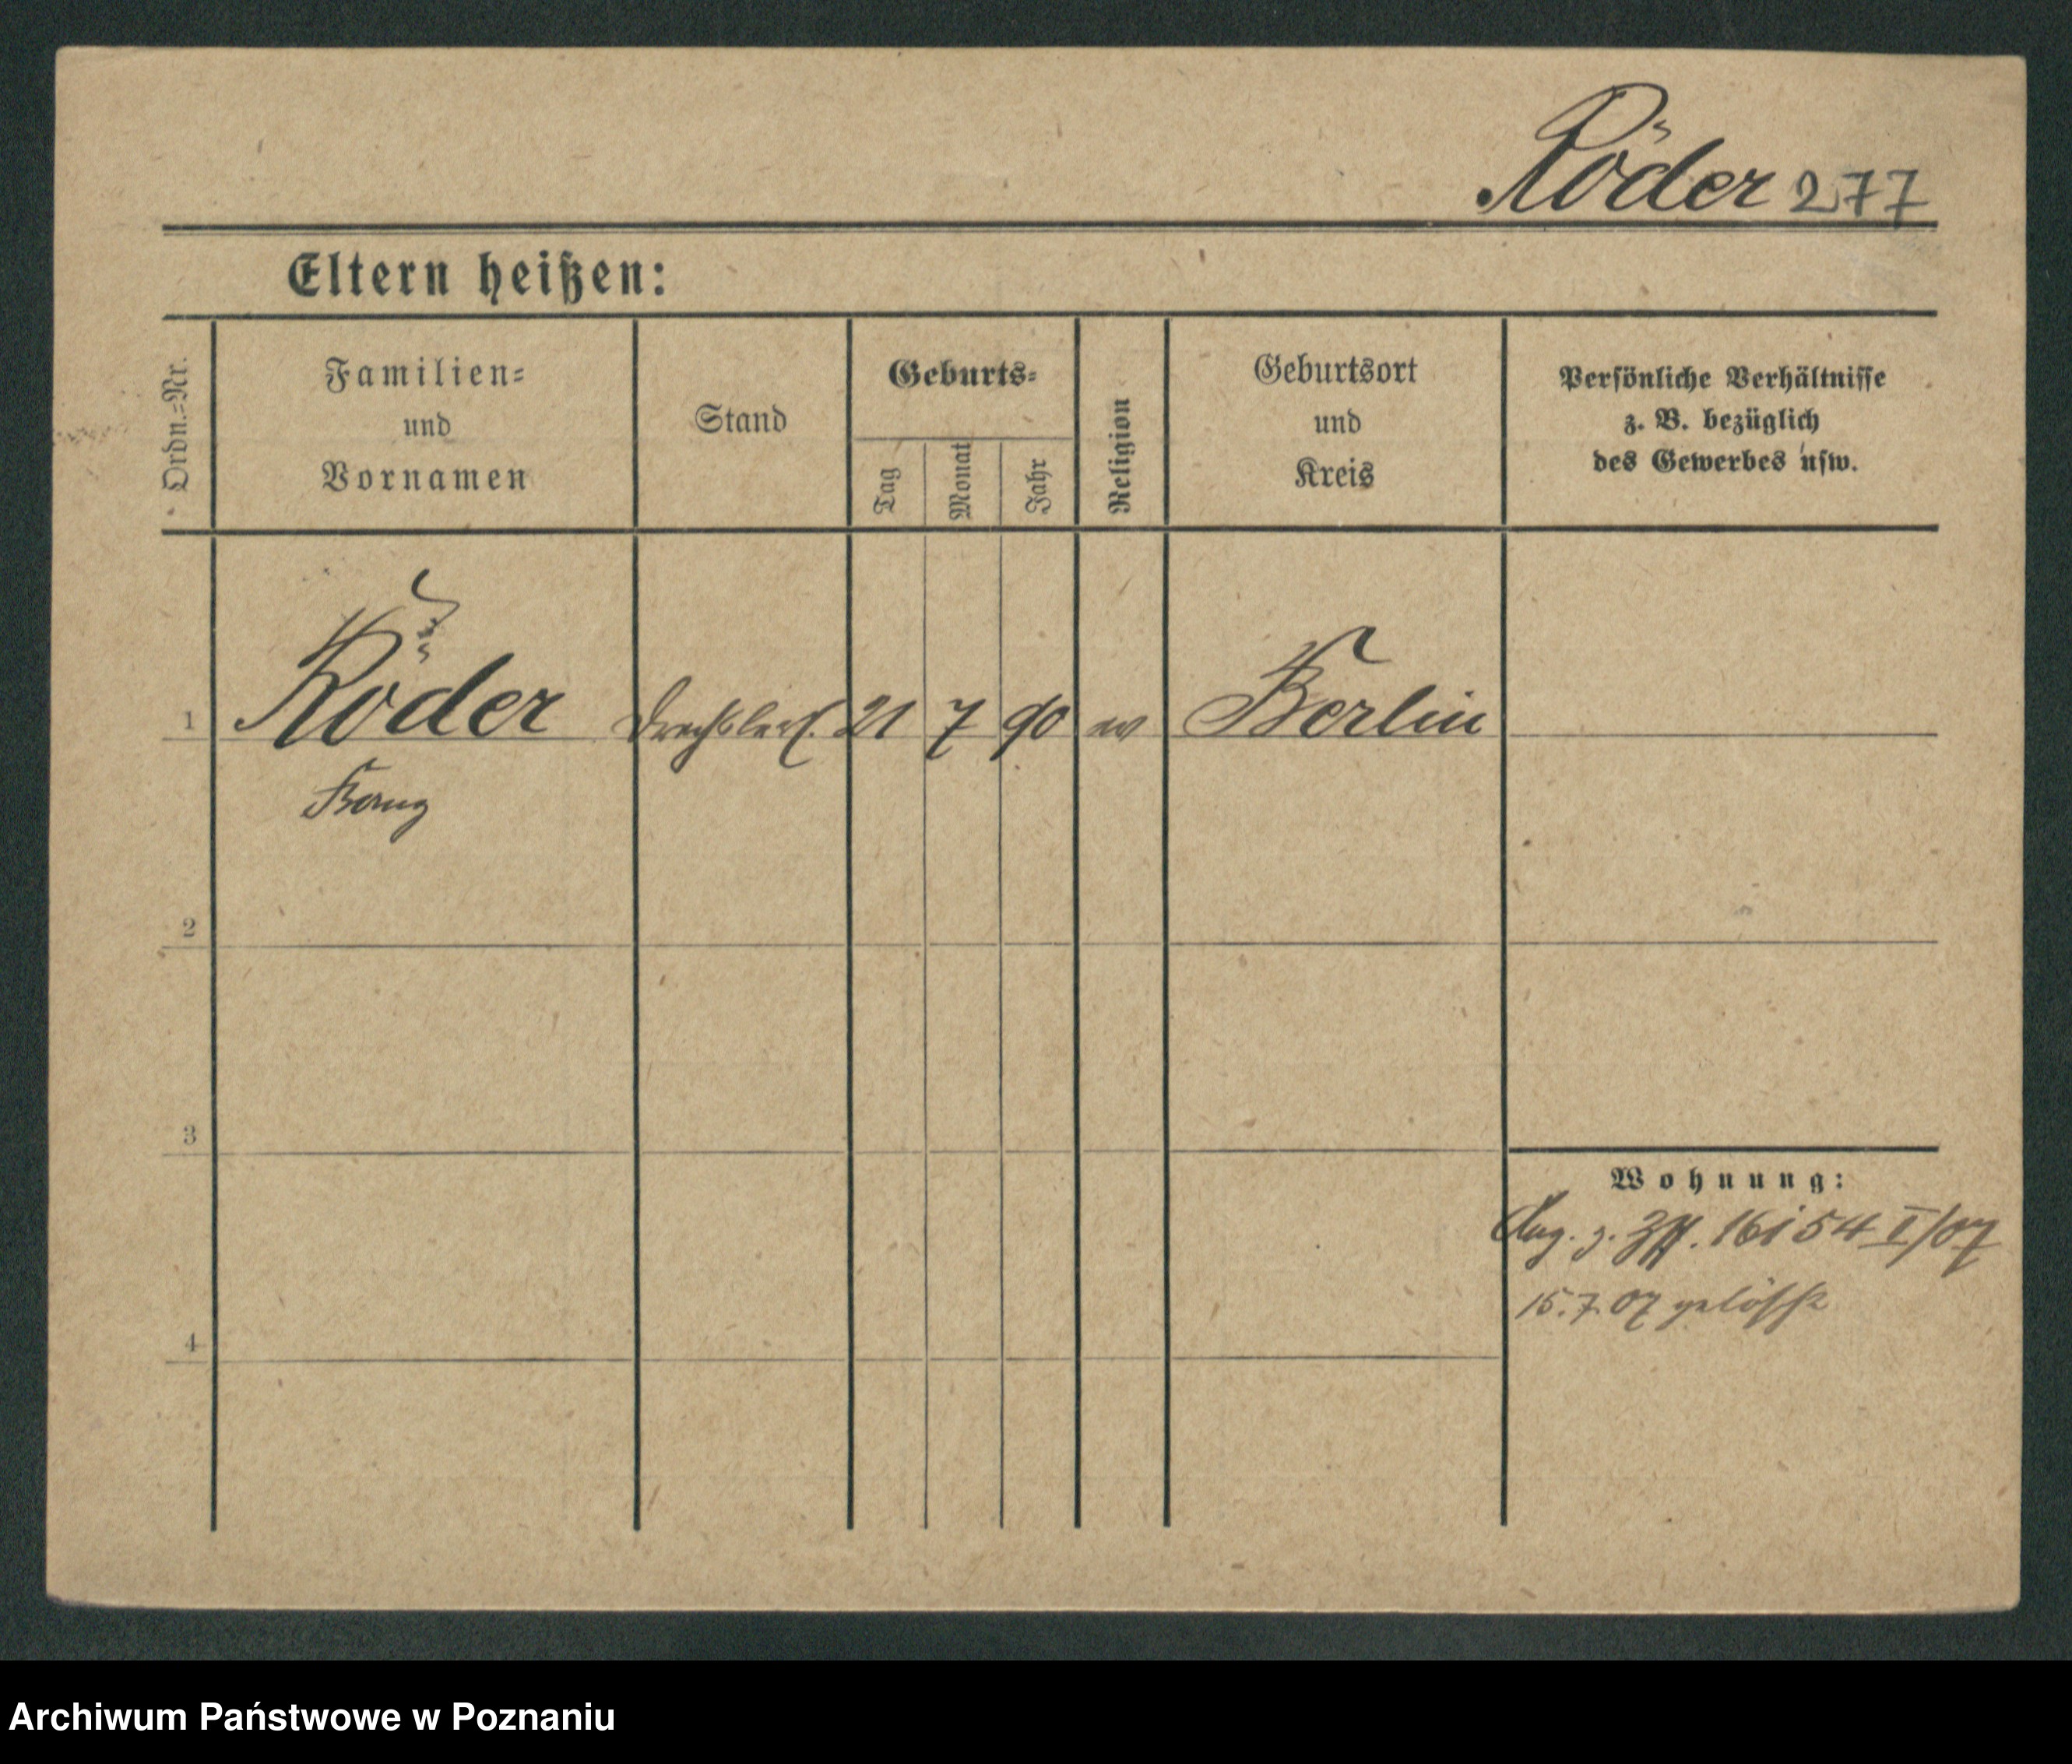 Röder 277
Eltern heißen:
Ordn.=Nr.
Familien=
und
Vornamen
Stand
Geburts=
Tag
Monat
Jahr
Religion
Geburtsort
und
Kreis
Persönliche Verhältnisse
z. B. bezüglich
des Gewerbes usw.
1 Röder Drechslerl. 21 7 90 ev Berlin
2
3
4
Wohnung:
Ang. z. 16154 I/07
15.7.07 gelöscht
Archiwum Państwowe w Poznaniu